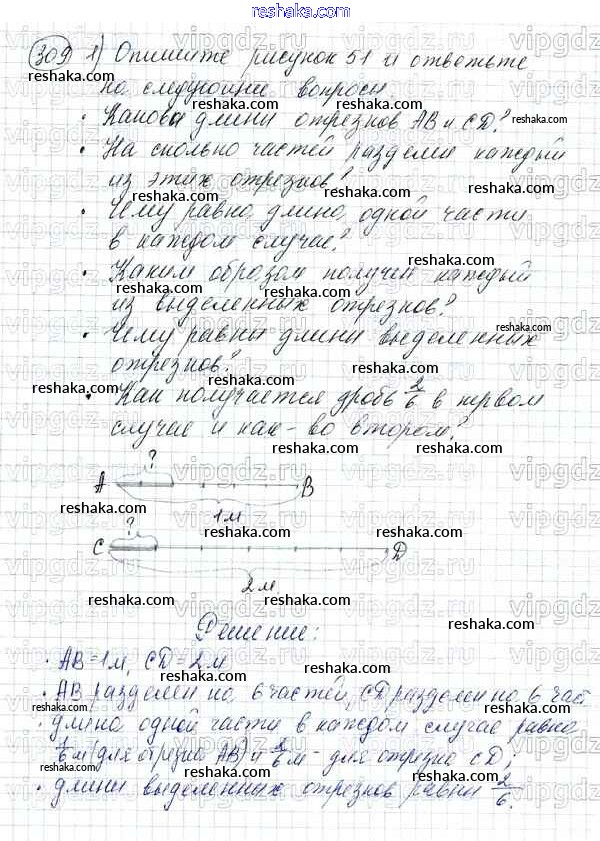 309 1) Опишите рисунок 51 и ответьте
на следующие вопросы.
• Каковы длины отрезков AB и CD?
• На сколько частей разделён каждый
из этих отрезков?
• Чему равна длина одной части
в каждом случае?
• Каким образом получен каждый
из выделенных отрезков?
• Чему равны длины выделенных
отрезков?
• Как получается дробь 2/6 в первом
случае и как - во втором?
?
A B
1м
?
C D
2 м
Решение:
• AB=1м, CD=2м
• AB разделен на 6 частей, CD разделен на 6 част
• длина одной части в каждом случае равна
1/6 м (для отрезка AB) и 2/6 м - для отрезка CD;
• длины выделенных отрезков равны 2/6.
reshaka.com
vipgdz.ru